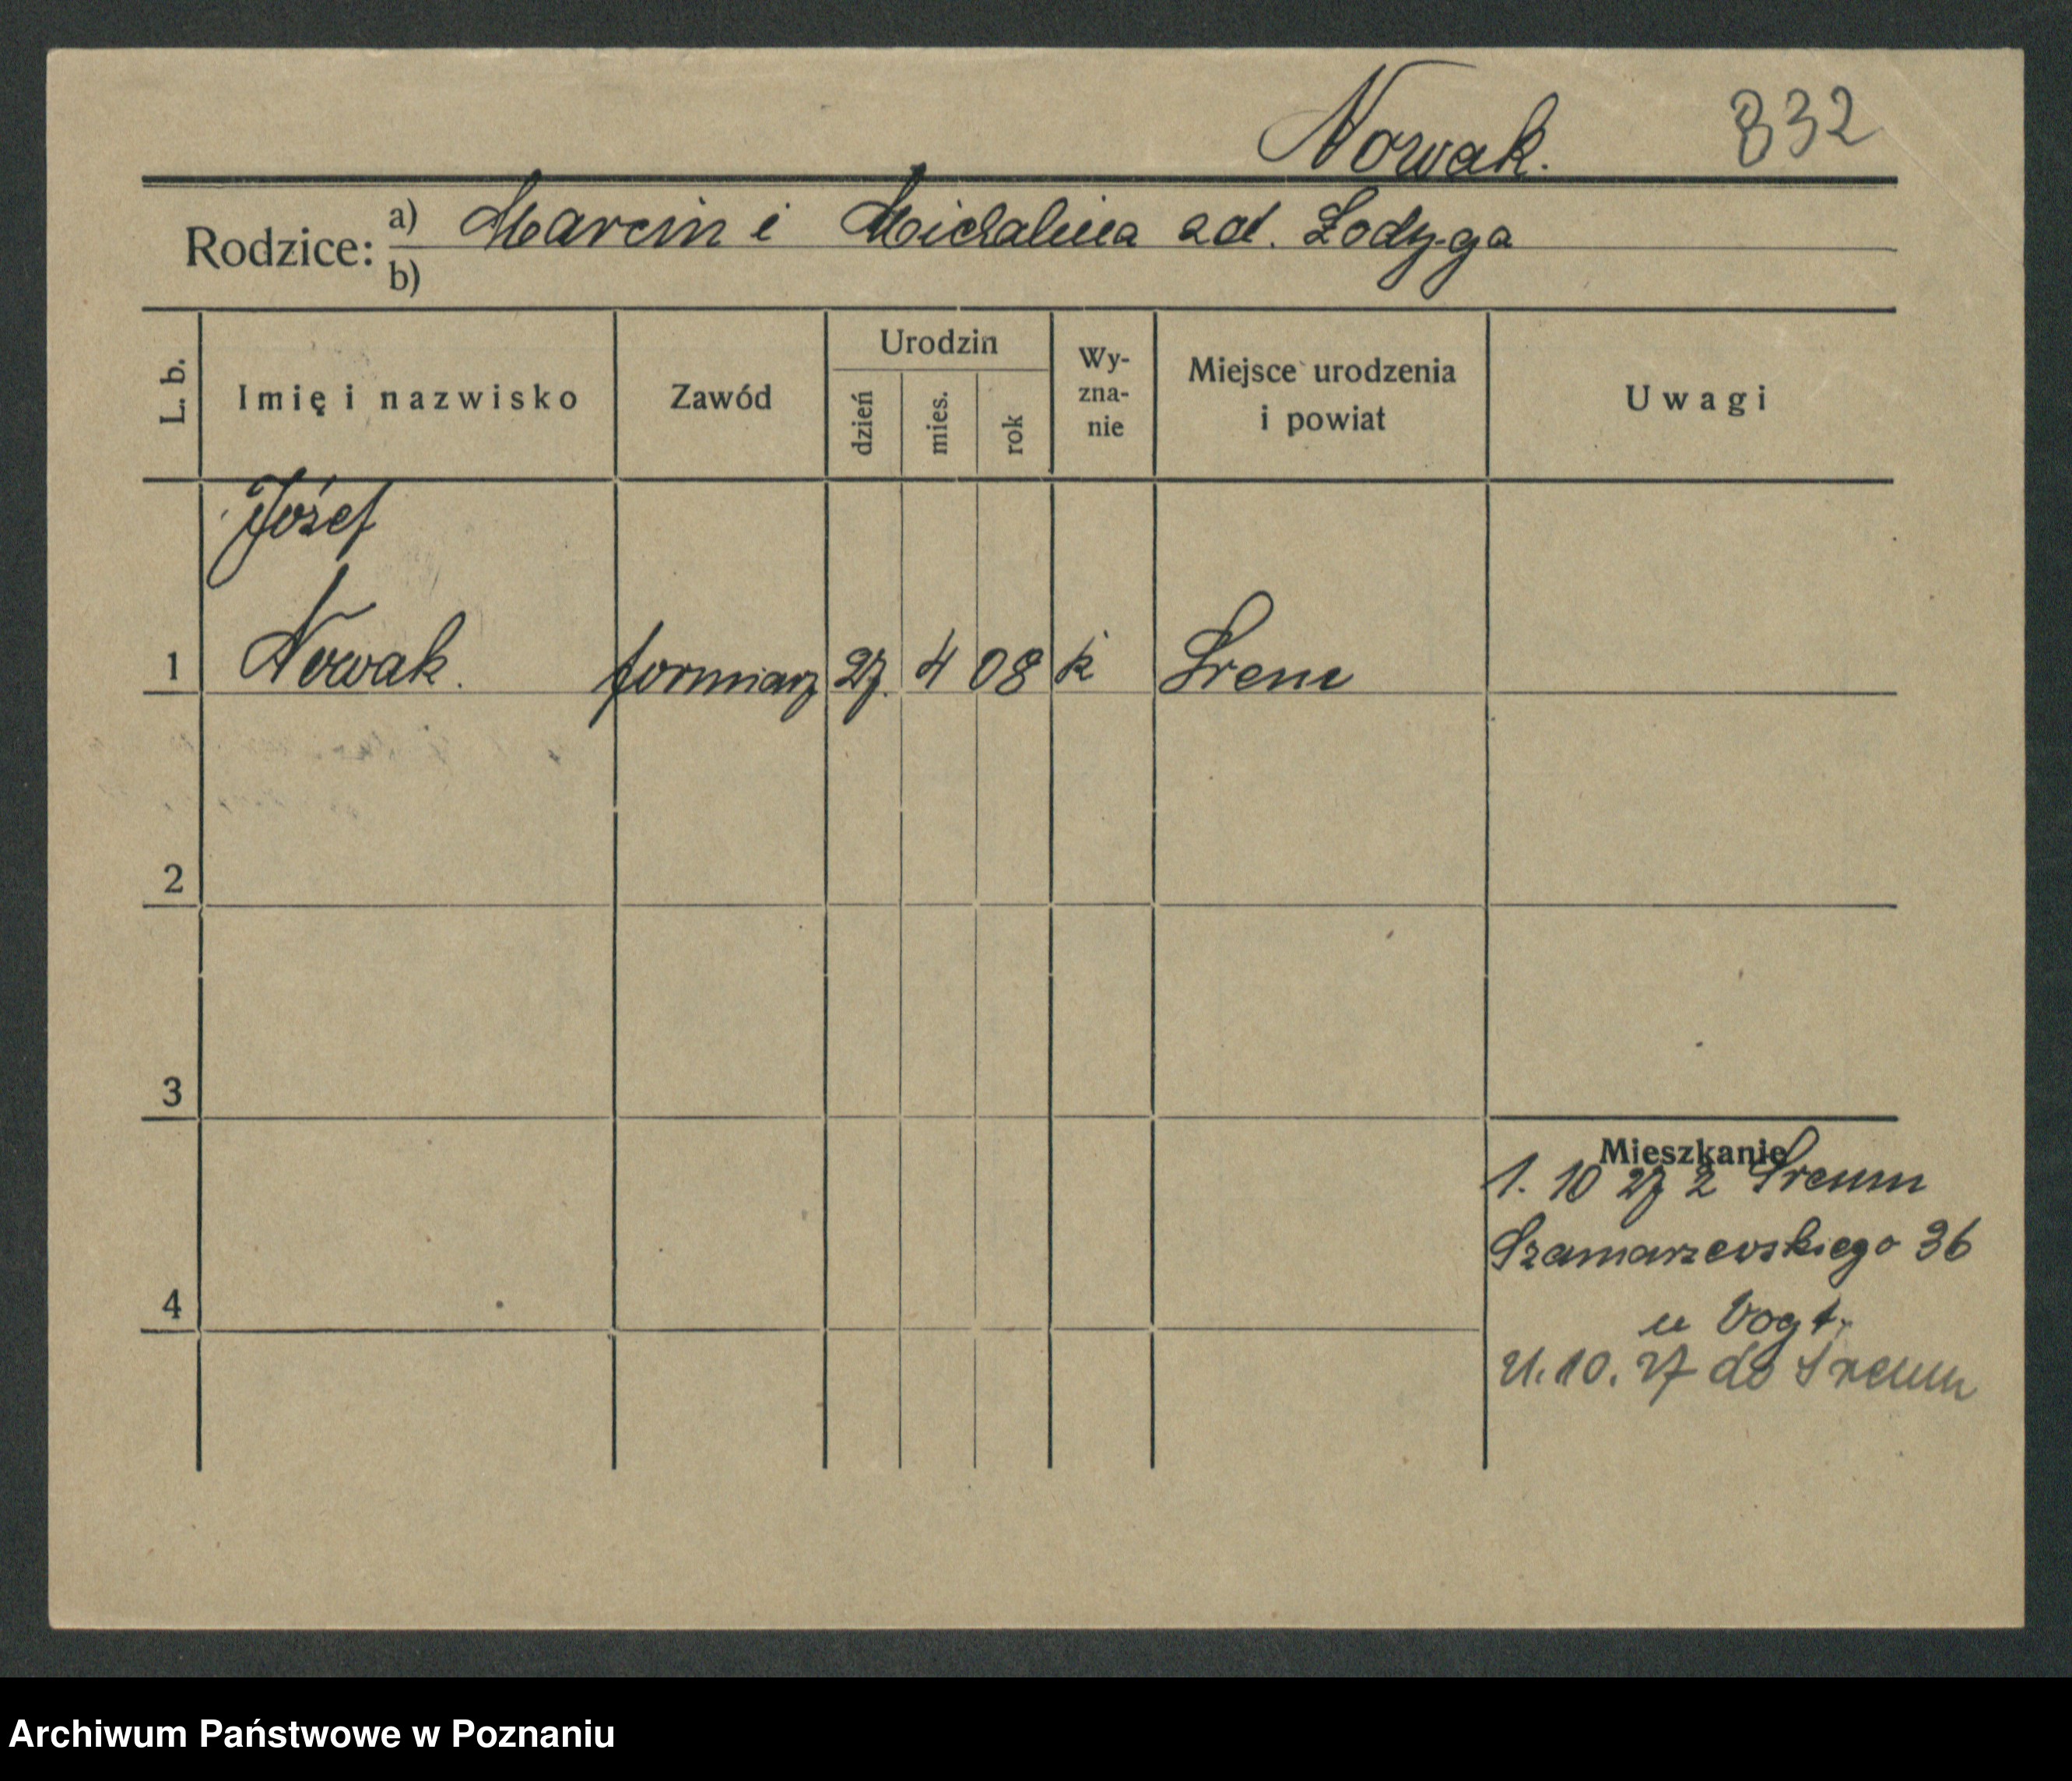 Nowak. 332
Rodzice: a) Marcin i Michalina zd. Łodyga
b)
L. b. Imię i nazwisko Zawód Urodzin dzień mies. rok Wy-zna-nie Miejsce urodzenia i powiat Uwagi
Józef
1 Nowak. formiarz 27. 4 08 k Śrem
2
3
4
Mieszkanie
1. 10 27 z Śremu
Szamarzewskiego 36
u Vogt.
21.10.27 do Śremu
Archiwum Państwowe w Poznaniu